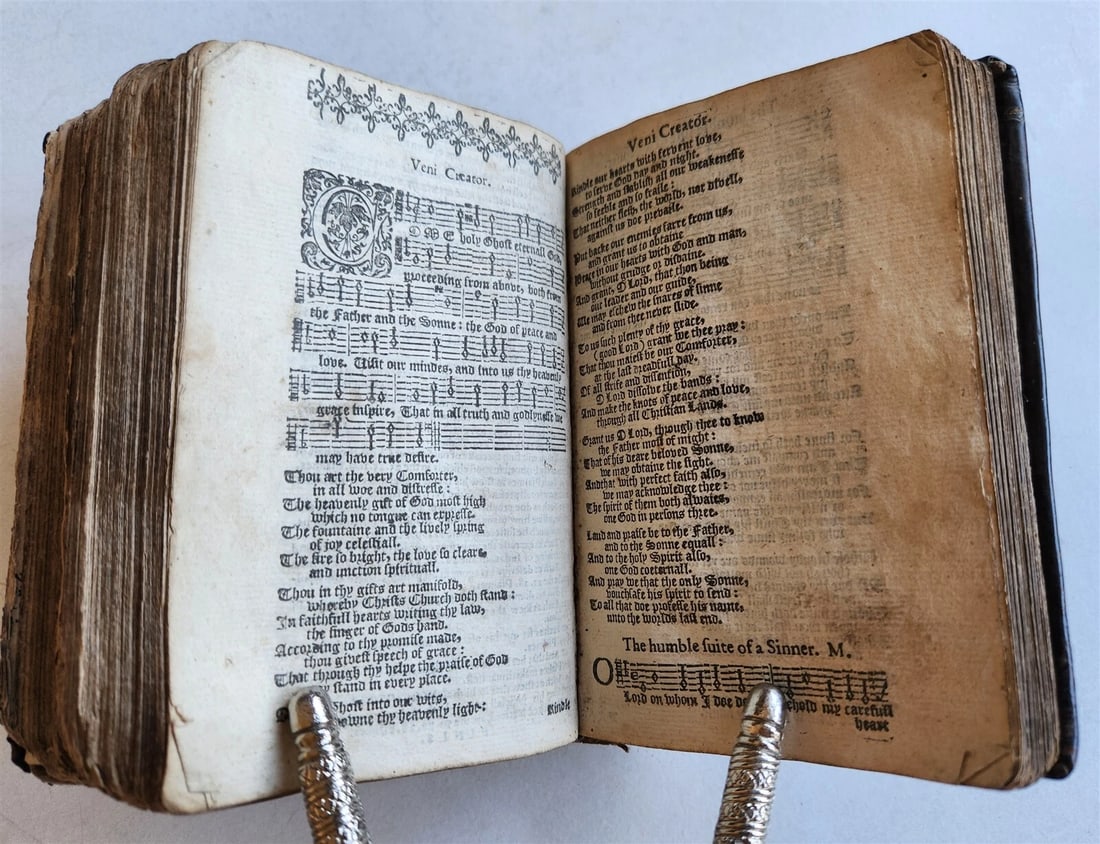 Veni Creator.
COME holy Ghost eternall God
proceeding from above, both from
the Father and the Sonne: the God of peace and
love. Visit our mindes, and into us thy heavenly
grace inspire, That in all truth and godlynesse we
may have true desire.
Thou art the very Comforter,
in all woe and distresse:
The heavenly gift of God most high
which no tongue can expresse.
The fountaine and the lively spring
of joy celestiall.
The fire so bright, the love so cleare
and unction spirituall.
Thou in thy gifts art manifold,
whereby Christs Church doth stand:
In faithfull hearts writing thy law,
the finger of Gods hand.
According to thy promise made,
thou givest speech of grace:
That through thy helpe the praise of God
stand in every place.
Ghost into our wits,
thy heavenly light:
Kindle
Veni Creator.
Kindle our hearts with fervent love,
to serve God day and night.
Strength and stablish all our weakenesse
so feeble and so fraile:
That neither flesh, the world, nor divell,
against us doe prevaile.
Put backe our enemies farre from us,
and grant us to obtaine
Peace in our hearts with God and man,
without grudge or disdaine.
And grant, O Lord, that thou being
our leader and our guide,
We may eschew the snares of sinne
and from thee never slide.
To us such plenty of thy grace,
(good Lord) grant we thee pray:
That thou maiest be our Comforter,
at the last dreadfull day.
Of all strife and dissention,
O Lord dissolve the bands:
And make the knots of peace and love,
through all Christian Lands.
Grant us O Lord, through thee to know
the Father most of might:
That of his deare beloved Sonne,
we may obtaine the sight.
And that with perfect faith also,
we may acknowledge thee:
The spirit of them both alwaies,
one God in persons three.
Laud and praise be to the Father,
and to the Sonne equall:
And to the holy Spirit also,
one God coeternall.
And pray we that the only Sonne,
vouchsafe his spirit to send:
To all that doe professe his name,
unto the worlds last end.
The humble suite of a Sinner. M.
O Lord on whom I doe behold my carefull
heart